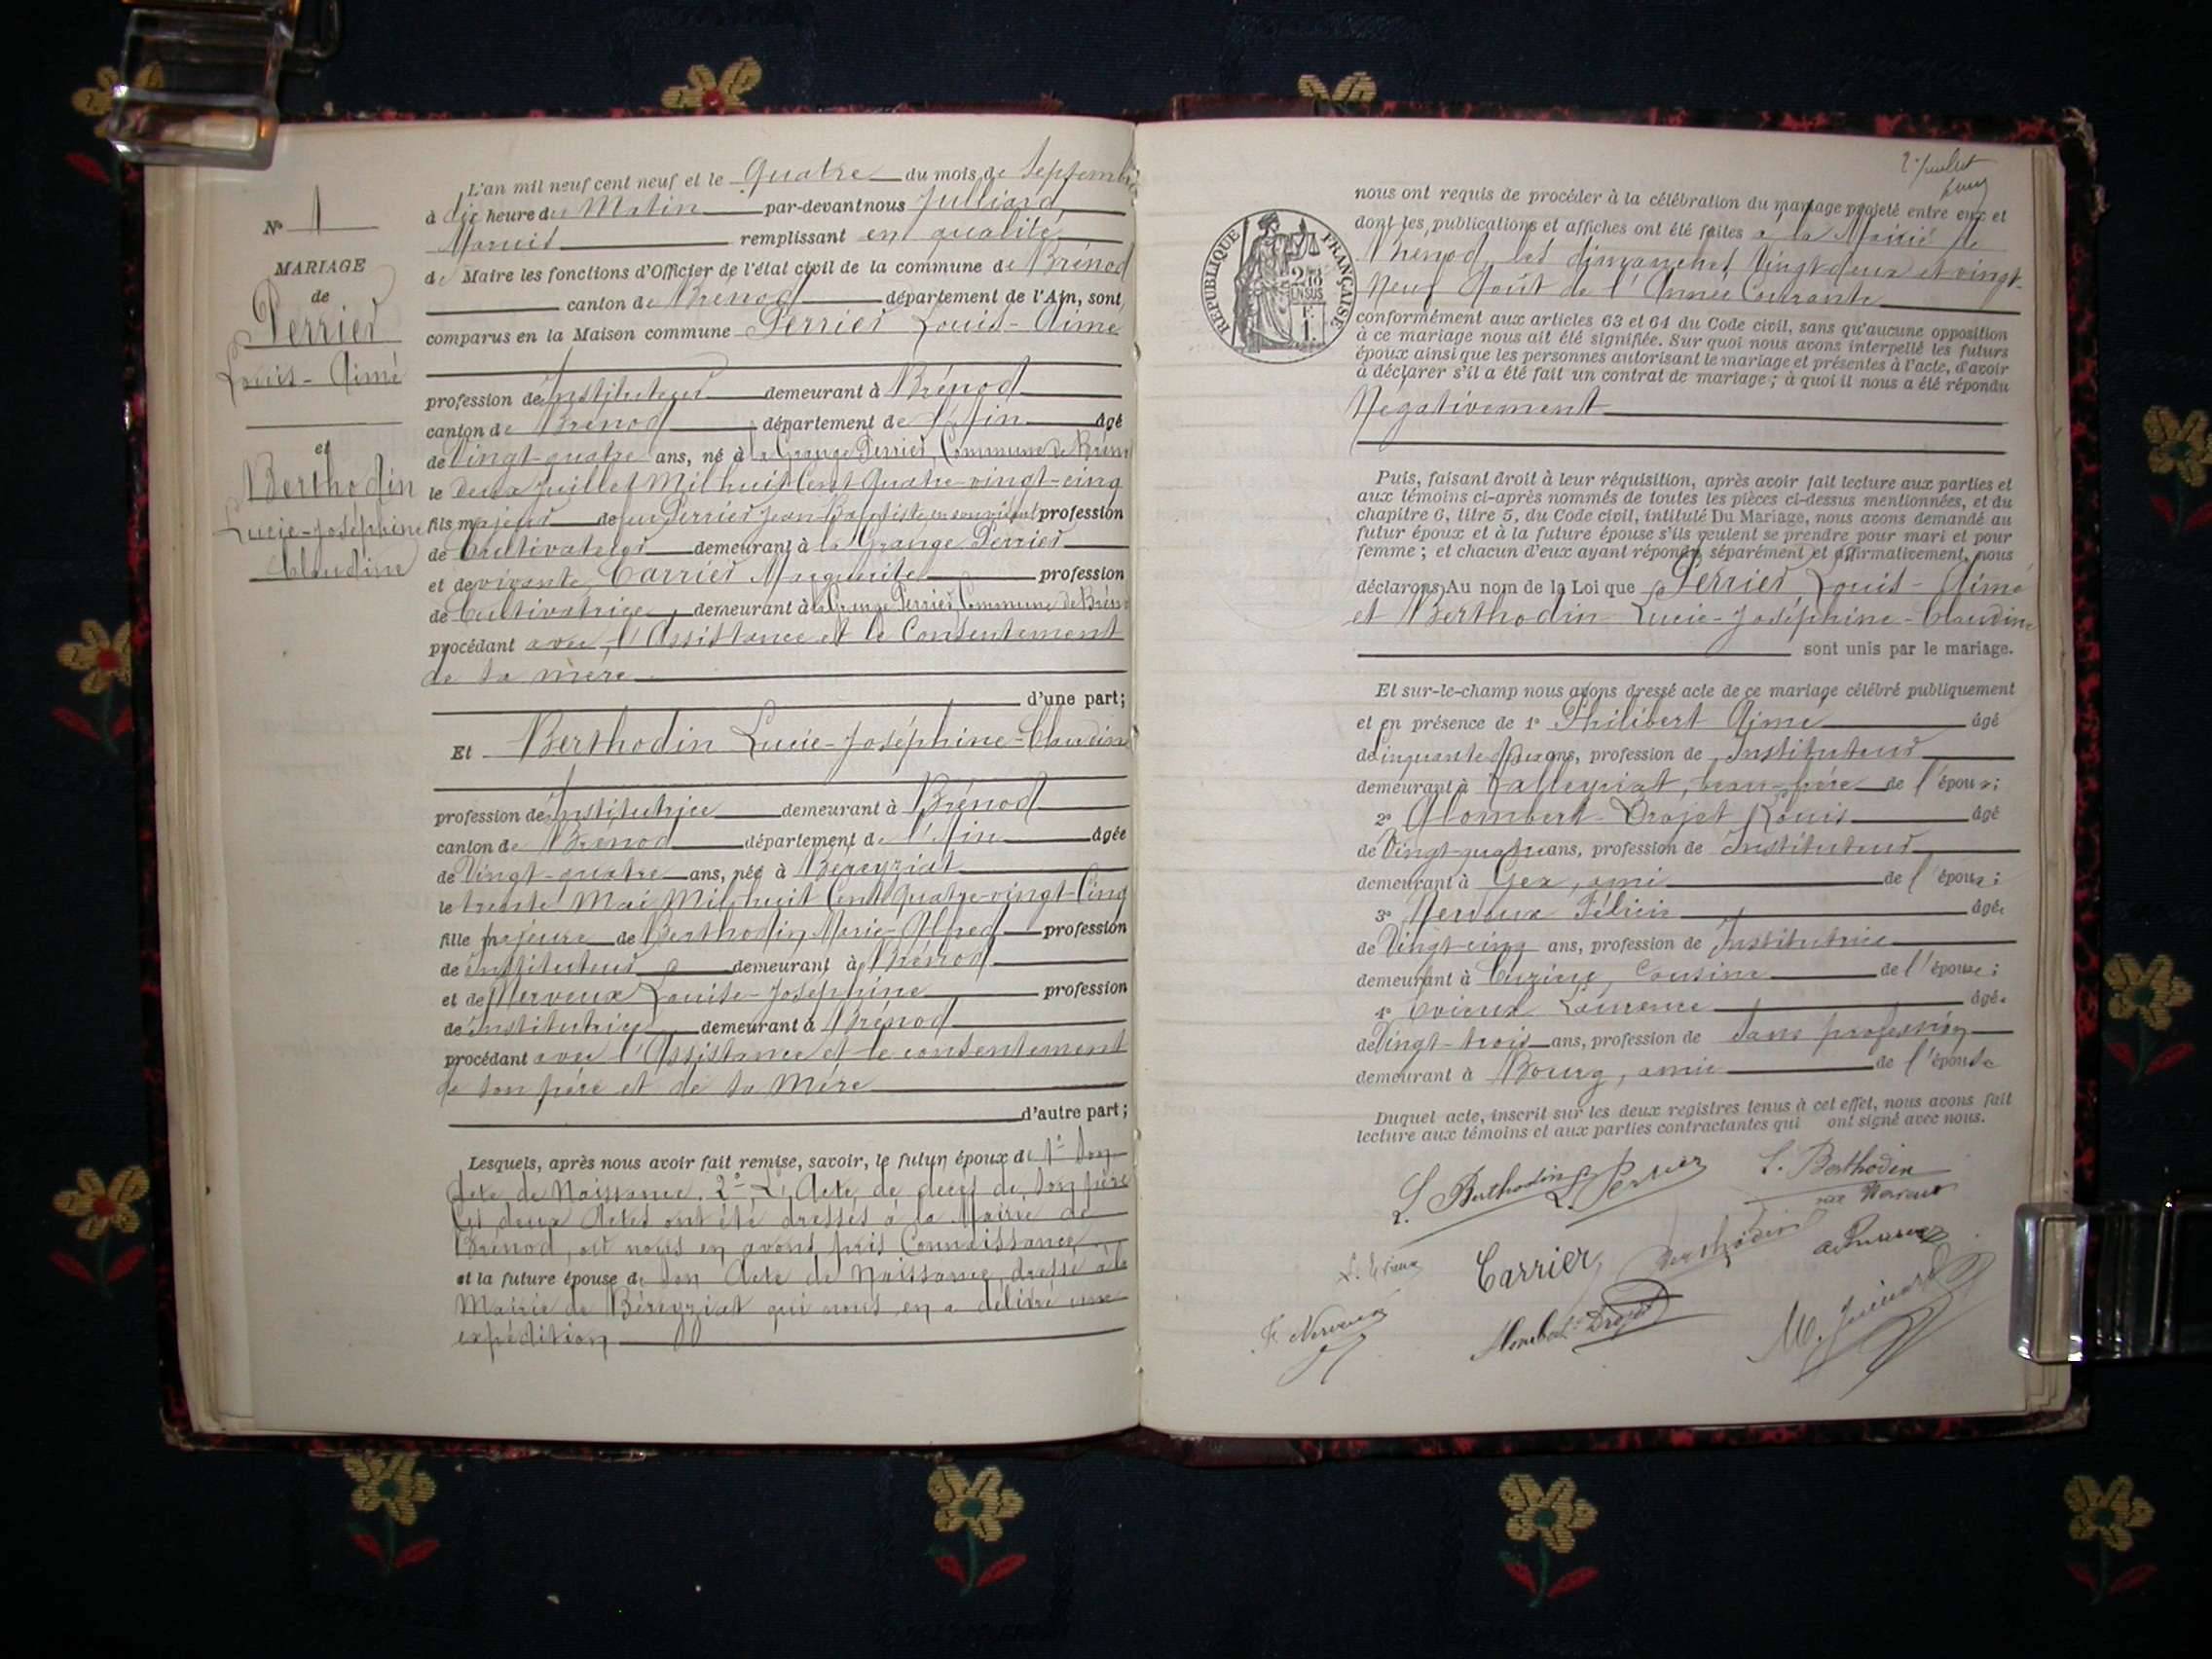 N° 1
MARIAGE
de
Perrier
Louis-Aimé
et
Berthodin
Lucie-Joséphine
Claudine
L'an mil neuf cent neuf et le Quatre du mois de Septembre
à dix heure du Matin par-devant nous Julliard
remplissant en qualité
de Maire les fonctions d'Officier de l'état civil de la commune de Brénod
canton de Brénod département de l'Ain, sont
comparus en la Maison commune Perrier Louis-Aimé
profession de Instituteur demeurant à Brénod
canton de Brénod département de l'Ain âgé
de Vingt-quatre ans, né à la Grange Perrier, Commune de Brénod
le deux Juillet Mil huit Cent Quatre-vingt-cinq
fils majeur de feu Perrier Jean Baptiste, en son vivant profession
de Cultivateur demeurant à la Grange Perrier
et de vivante Carrier Marguerite profession
de Cultivatrice demeurant à la Grange Perrier Commune de Brénod
procédant avec l'Assistance et le Consentement
de sa mère
d'une part;
Et Berthodin Lucie-Joséphine-Claudine
profession de Institutrice demeurant à Brénod
canton de Brénod département de l'Ain âgée
de Vingt-quatre ans, née à Béreyziat
le trente Mai Mil huit Cent quatre-vingt-Cinq
fille majeure de Berthodin Marie-Alfred profession
de Instituteur demeurant à Brénod
et de Nerveux Louise-Joséphine profession
de Institutrice demeurant à Brénod
procédant avec l'Assistance et le consentement
de son père et de sa Mère
d'autre part;
Lesquels, après nous avoir fait remise, savoir, le futur époux de 1° Son
Acte de Naissance. 2° L'Acte de décès de son père
Ces deux Actes ont été dressés à la Mairie de
Brénod, où nous en avons pris Connaissance
et la future épouse de Son Acte de Naissance, dressé à la
Mairie de Béreyziat qui nous en a délivré une
expédition
2e Juillet
RÉPUBLIQUE FRANÇAISE
2/10
EN SUS
1 F.
nous ont requis de procéder à la célébration du mariage projeté entre eux et
dont les publications et affiches ont été faites à la Mairie de
Brénod, les dimanches Vingt-deux et vingt-
Neuf Août de l'Année Courante
conformément aux articles 63 et 64 du Code civil, sans qu'aucune opposition
à ce mariage nous ait été signifiée. Sur quoi nous avons interpellé les futurs
époux ainsi que les personnes autorisant le mariage et présentes à l'acte, d'avoir
à déclarer s'il a été fait un contrat de mariage; à quoi il nous a été répondu
Négativement
Puis, faisant droit à leur réquisition, après avoir fait lecture aux parties et
aux témoins ci-après nommés de toutes les pièces ci-dessus mentionnées, et du
chapitre 6, titre 5, du Code civil, intitulé Du Mariage, nous avons demandé au
futur époux et à la future épouse s'ils veulent se prendre pour mari et pour
femme; et chacun d'eux ayant répondu séparément et affirmativement, nous
déclarons Au nom de la Loi que Perrier Louis-Aimé
et Berthodin Lucie-Joséphine-Claudine
sont unis par le mariage.
Et sur-le-champ nous avons dressé acte de ce mariage célébré publiquement
et en présence de 1° Philibert Aimé âgé
de cinquante deux ans, profession de Instituteur
demeurant à Talleyriat, beau-frère de l'époux;
2° Alombert-Drojet Louis âgé
de Vingt-quatre ans, profession de Instituteur
demeurant à Gex, ami de l'époux;
3° Nerveux Félicie âgée
de Vingt-cinq ans, profession de Institutrice
demeurant à Curciat, Cousine de l'épouse;
4° Evieux Laurence âgée
de Vingt-trois ans, profession de Sans profession
demeurant à Bourg, amie de l'épouse
Duquel acte, inscrit sur les deux registres tenus à cet effet, nous avons fait
lecture aux témoins et aux parties contractantes qui ont signé avec nous.
L. Berthodin L. Perrier L. Berthodin
née Nerveux
L. Evieux Carrier Berthodin
F. Nerveux Alombert-Drojet M. Julliard